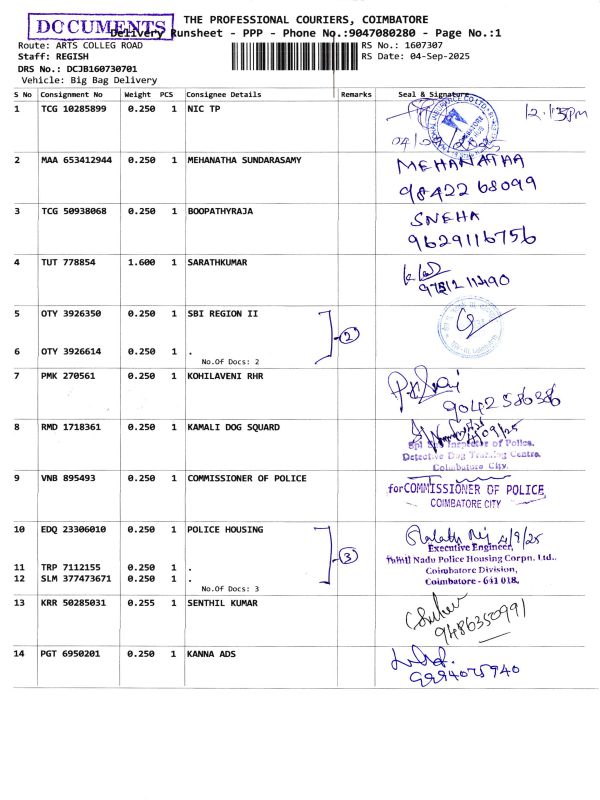 DOCUMENTS
THE PROFESSIONAL COURIERS, COIMBATORE
Delivery Runsheet - PPP - Phone No.:9047080280 - Page No.:1
Route: ARTS COLLEG ROAD
RS No.: 1607307
Staff: REGISH
RS Date: 04-Sep-2025
DRS No.: DCJB160730701
Vehicle: Big Bag Delivery
S No Consignment No Weight PCS Consignee Details Remarks Seal & Signature
1 TCG 10285899 0.250 1 NIC TP
12.15pm
2 MAA 653412944 0.250 1 MEHANATHA SUNDARASAMY MEHANATHA
9842268099
3 TCG 50938068 0.250 1 BOOPATHYRAJA SNEHA
9629116756
4 TUT 778854 1.600 1 SARATHKUMAR
5 OTY 3926350 0.250 1 SBI REGION II
2
6 OTY 3926614 0.250 1 .
No.Of Docs: 2
7 PMK 270561 0.250 1 KOHILAVENI RHR
8 RMD 1718361 0.250 1 KAMALI DOG SQUARD
Inspector of Police,
Detective Dog Training Centre,
Coimbatore City.
9 VNB 895493 0.250 1 COMMISSIONER OF POLICE
for COMMISSIONER OF POLICE
COIMBATORE CITY
10 EDQ 23306010 0.250 1 POLICE HOUSING
4/9/25
Executive Engineer,
3
Tamil Nadu Police Housing Corpn. Ltd.,
11 TRP 7112155 0.250 1 .
Coimbatore Division,
12 SLM 377473671 0.250 1 .
Coimbatore - 641 018.
No.Of Docs: 3
13 KRR 50285031 0.255 1 SENTHIL KUMAR
9486350991
14 PGT 6950201 0.250 1 KANNA ADS
9994075940